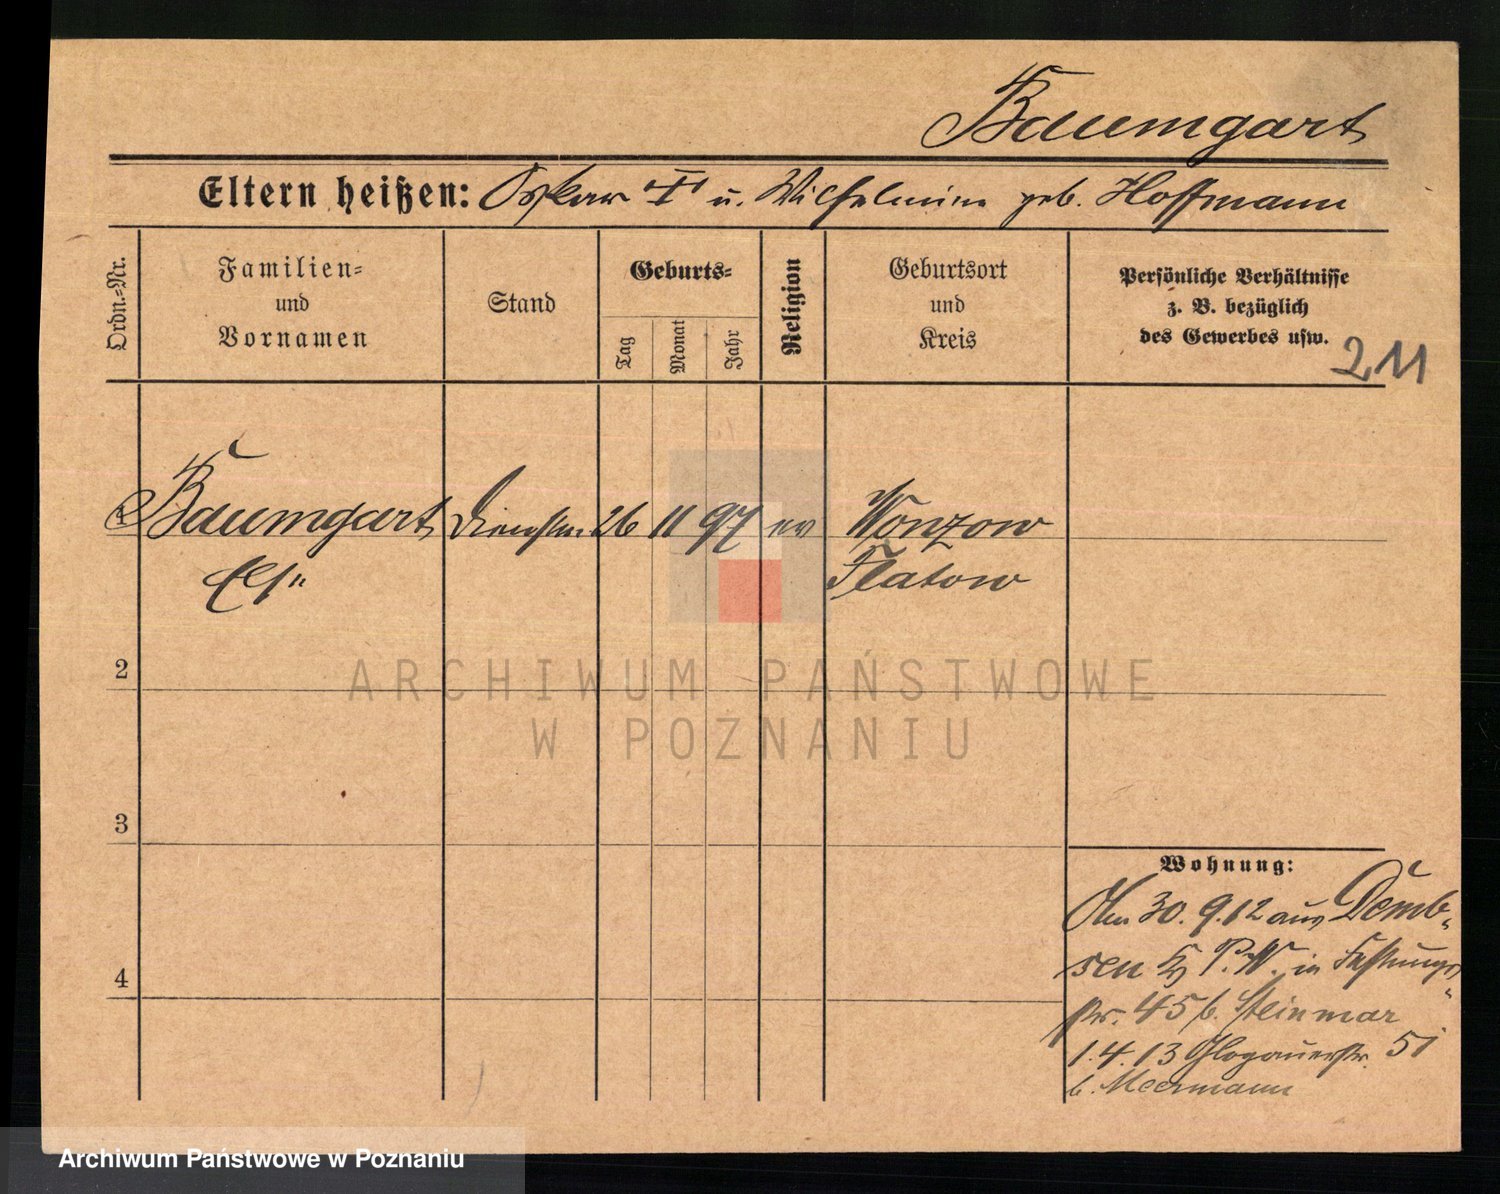 Baumgart
Eltern heißen: Oskar "I" u. Wilhelmine geb. Hoffmann
Ordn.-Nr.
Familien-
und
Vornamen
Stand
Geburts-
Tag
Monat
Jahr
Religion
Geburtsort
und
Kreis
Persönliche Verhältnisse
z. B. bezüglich
des Gewerbes usw.
211
1 Baumgart Dienstm. 26 11 97 ev Wonzow
Else Flatow
2
3
4
Wohnung:
30. 9. 12 aus Demb-
sen P. W. in Festungs-
str. 45 b. Steinmar
1. 4. 13 Glogauerstr. 51
b. Meermann
ARCHIWUM PAŃSTWOWE
W POZNANIU
Archiwum Państwowe w Poznaniu